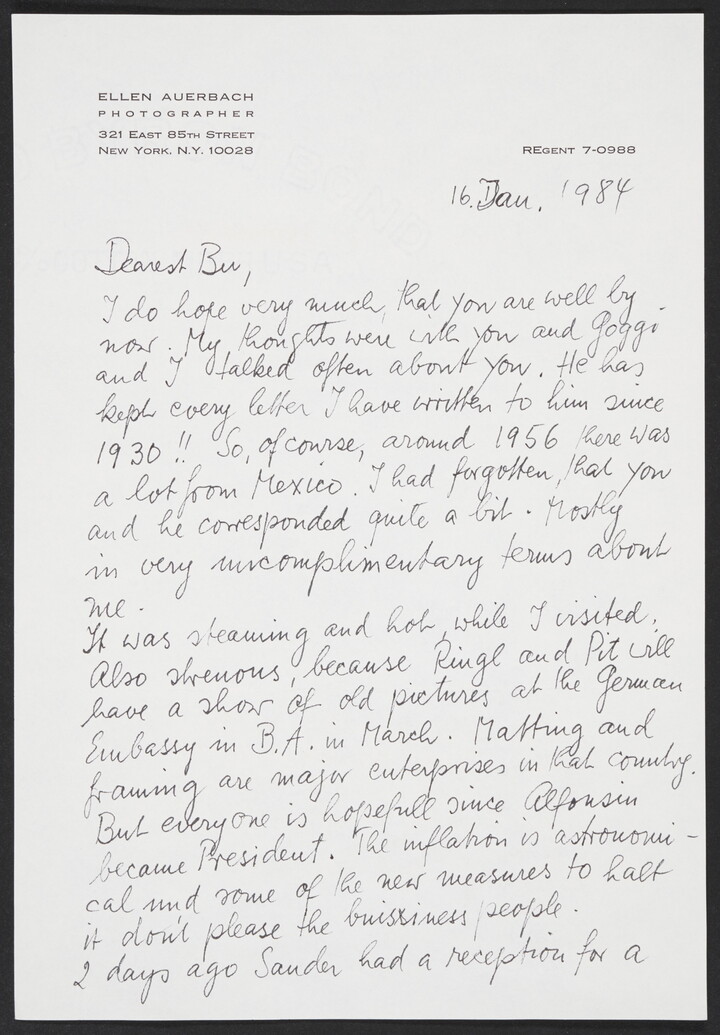 ELLEN AUERBACH
PHOTOGRAPHER
321 EAST 85TH STREET
NEW YORK, N.Y. 10028
REGENT 7-0988
16. Jan. 1984
Dearest Bu,
I do hope very much, that you are well by
now. My thoughts were with you and Goggi
and I talked often about you. He has
kept every letter I have written to him since
1930!! So, of course, around 1956 there was
a lot from Mexico. I had forgotten, that you
and he corresponded quite a bit. Mostly
in very uncomplimentary terms about
me.
It was steaming and hot, while I visited.
Also strenous, because Ringl and Pit will
have a show of old pictures at the German
Embassy in B.A. in March. Matting and
framing are major enterprises in that country.
But everyone is hopefull since Alfonsin
became President. The inflation is astronomi-
cal und some of the new measures to halt
it don't please the buissiness people.
2 days ago Sander had a reception for a